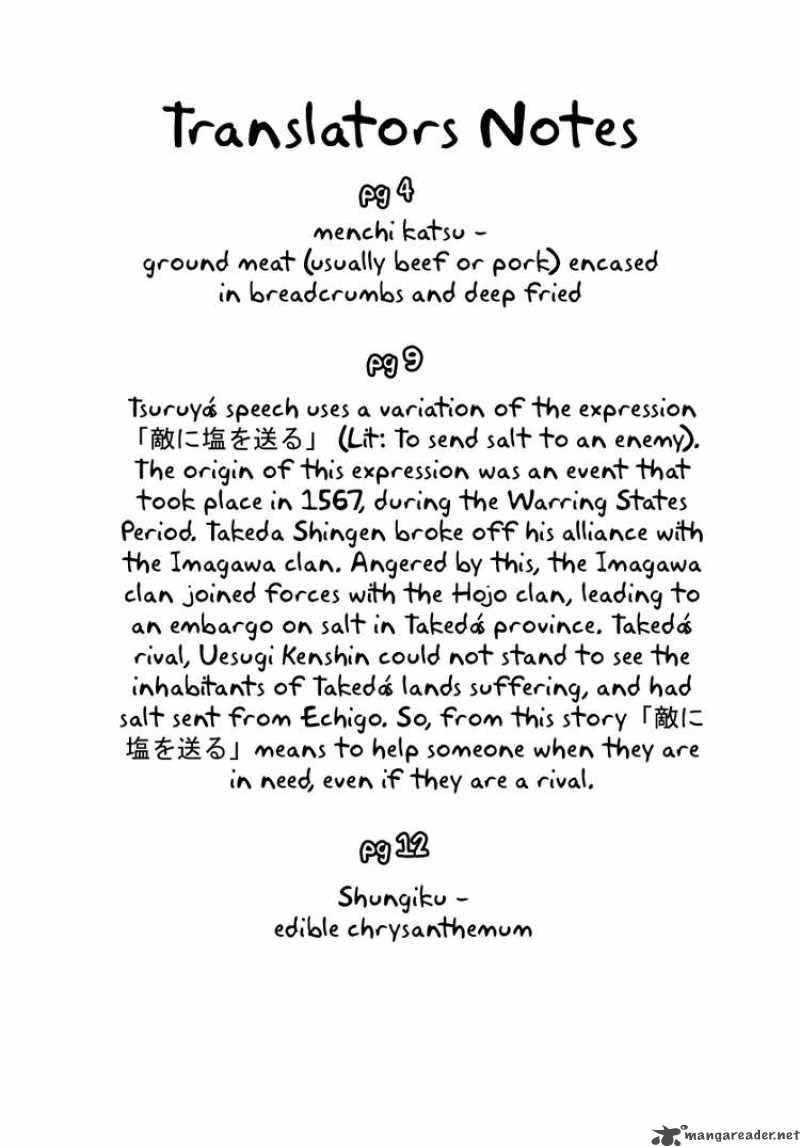 Translators Notes
pg 4
menchi katsu -
ground meat (usually beef or pork) encased
in breadcrumbs and deep fried
pg 9
Tsuruya's speech uses a variation of the expression
「敵に塩を送る」 (Lit: To send salt to an enemy).
The origin of this expression was an event that
took place in 1567, during the Warring States
Period. Takeda Shingen broke off his alliance with
the Imagawa clan. Angered by this, the Imagawa
clan joined forces with the Hojo clan, leading to
an embargo on salt in Takeda's province. Takeda's
rival, Uesugi Kenshin could not stand to see the
inhabitants of Takeda's lands suffering, and had
salt sent from Echigo. So, from this story「敵に
塩を送る」means to help someone when they are
in need, even if they are a rival.
pg 12
Shungiku -
edible chrysanthemum
mangareader.net